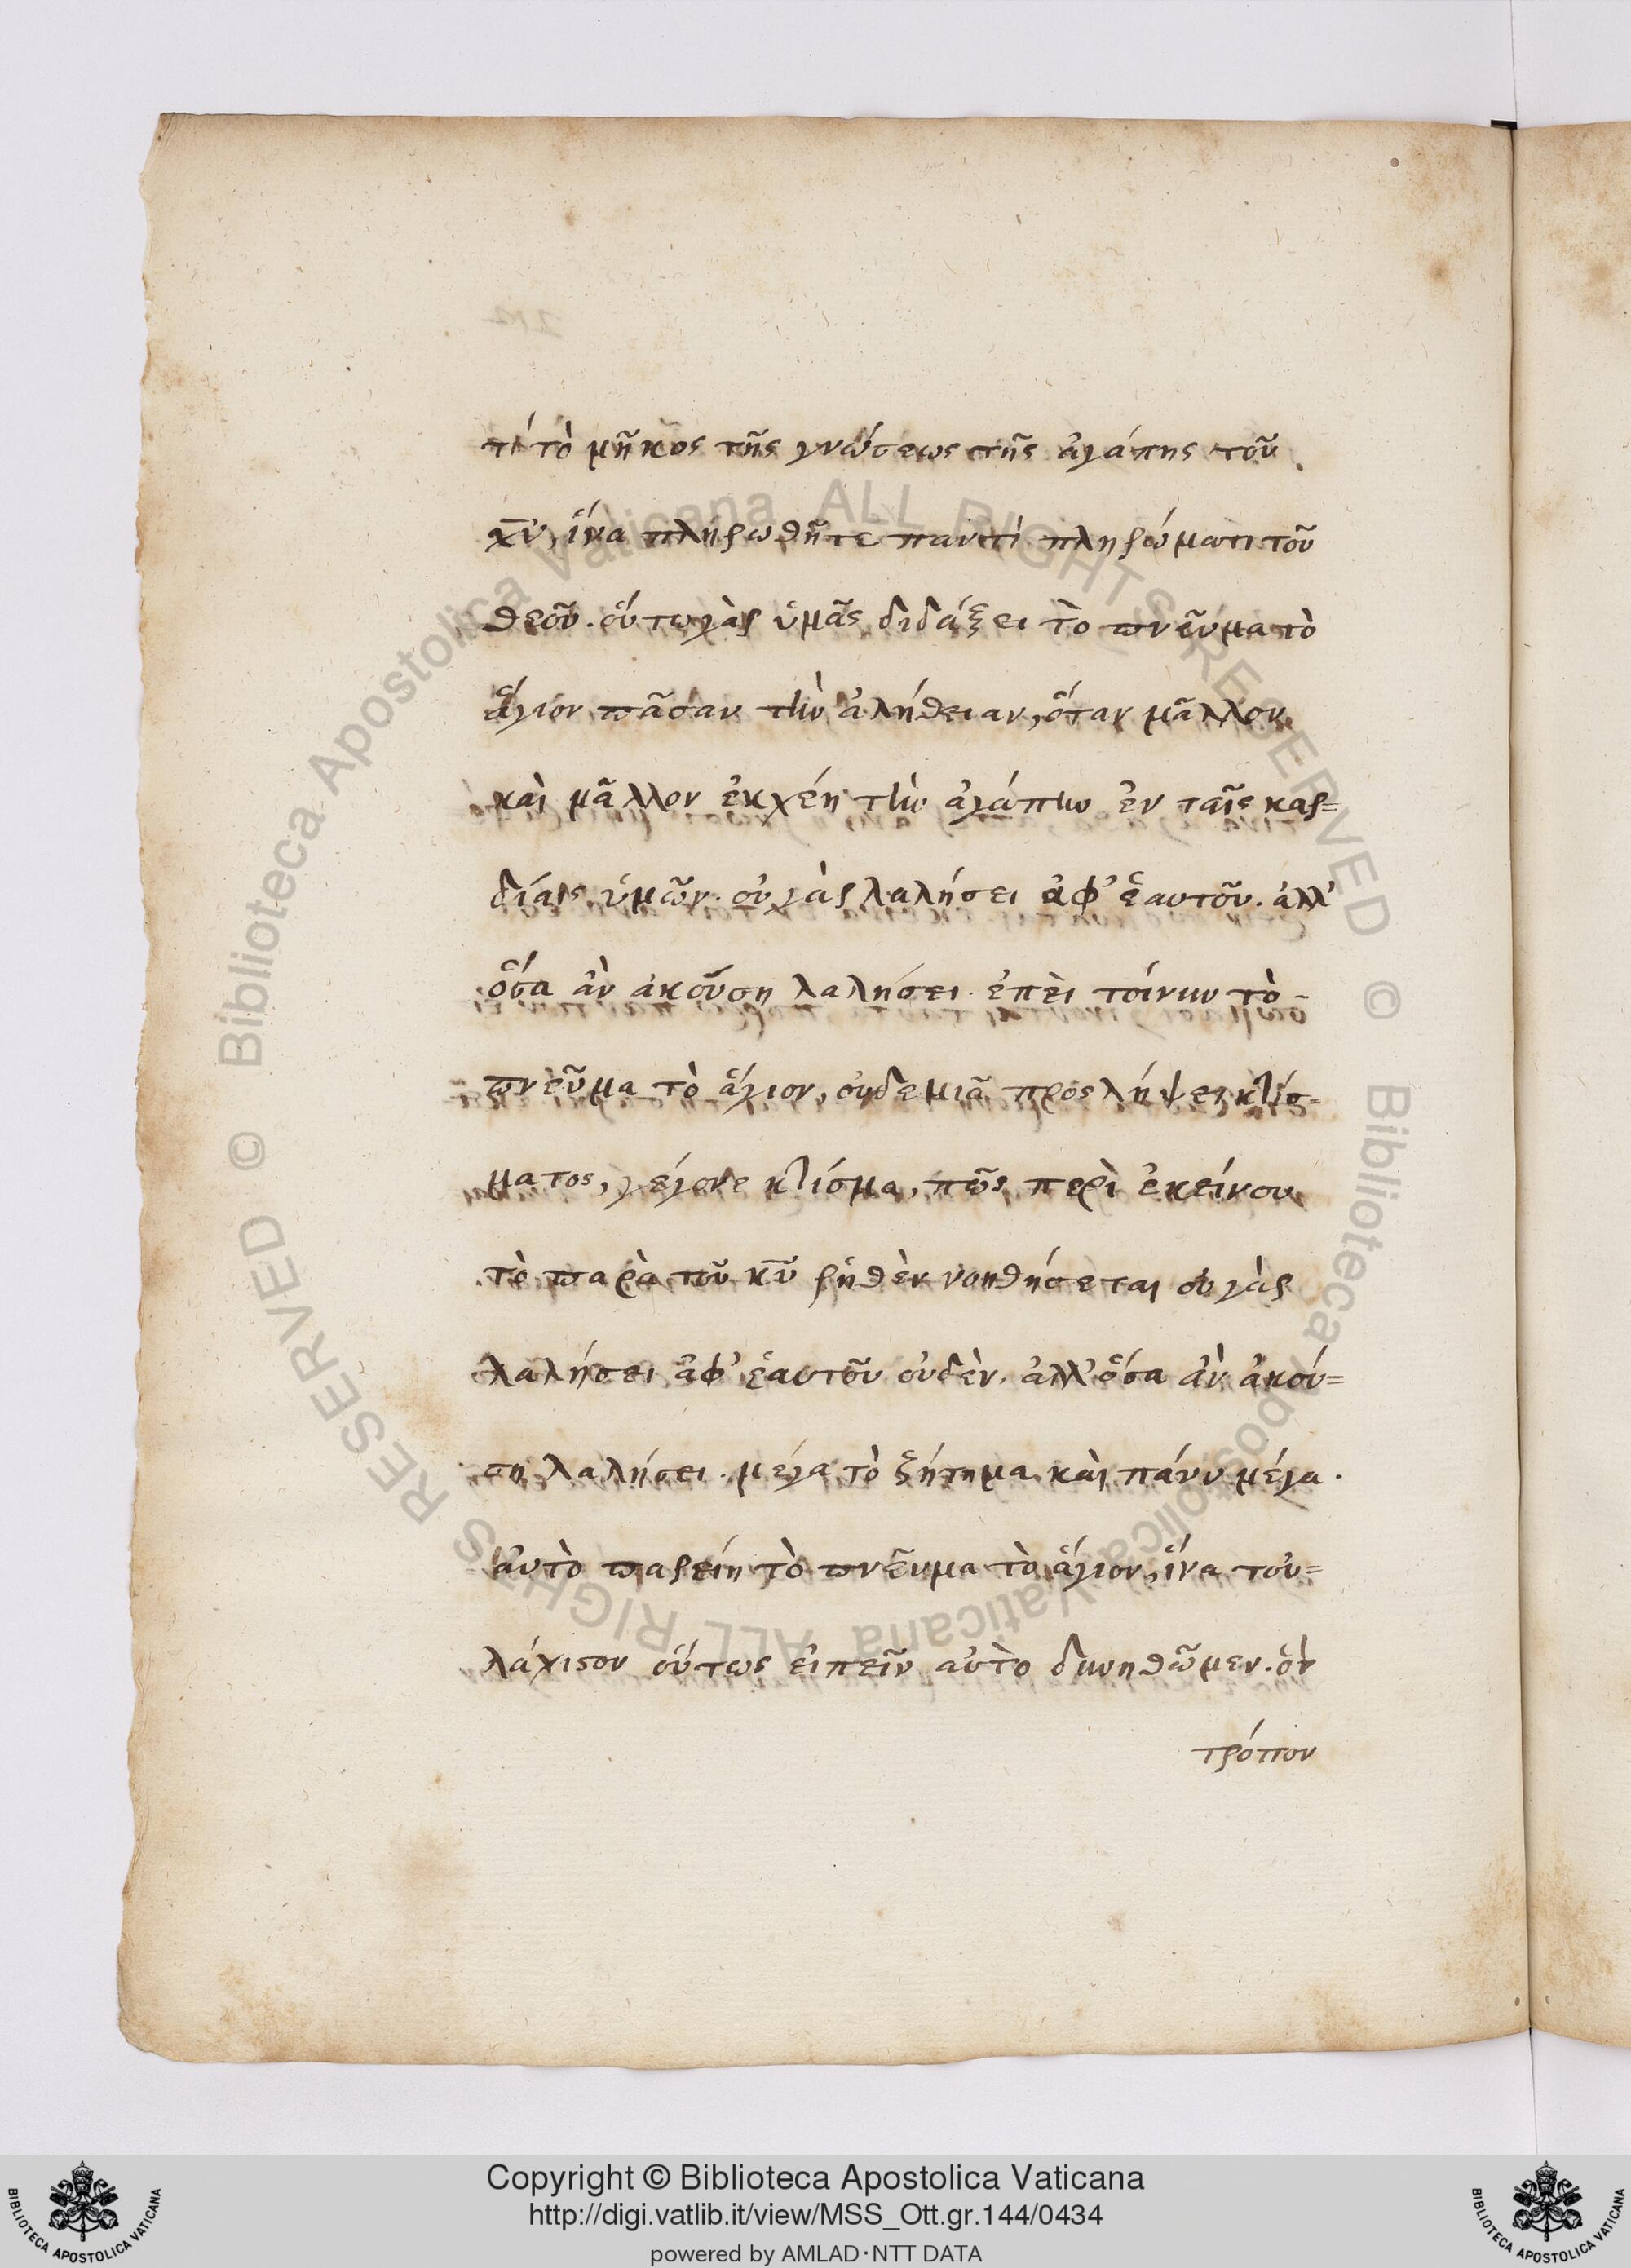 τί τὸ μῆκος τῆς γνώσεως τῆς ἀγάπης τοῦ
χ̅υ̅, ἵνα πληρωθῆτε παντὶ πληρώματι τοῦ
θεοῦ. οὕτω γὰρ ὑμᾶς διδάξει τὸ πνεῦμα τὸ
ἅγιον πᾶσαν τὴν ἀλήθειαν, ὅταν μᾶλλον
καὶ μᾶλλον ἐκχέῃ τὴν ἀγάπην ἐν ταῖς καρ=
δίαις ὑμῶν. οὐ γὰρ λαλήσει ἀφ' ἑαυτοῦ. ἀλλ'
ὅσα ἂν ἀκούσῃ λαλήσει. ἐπεὶ τοίνυν τὸ -
πνεῦμα τὸ ἅγιον, οὐδεμιᾷ προσλήψει κτίσ=
ματος, γέγονε κτίσμα, πῶς περὶ ἐκείνου
τὸ παρὰ τοῦ κ̅υ̅ ῥηθὲν νοηθήσεται οὐ γὰρ
λαλήσει ἀφ' ἑαυτοῦ οὐδὲν. ἀλλ' ὅσα ἂν ἀκού=
σῃ λαλήσει. μέγα τὸ ζήτημα καὶ πάνυ μέγα.
αὐτὸ παρείη τὸ πνεῦμα τὸ ἅγιον, ἵνα του=
λάχιστον οὕτως εἰπεῖν αὐτὸ δυνηθῶμεν. ὃν
τρόπον
Copyright © Biblioteca Apostolica Vaticana
http://digi.vatlib.it/view/MSS_Ott.gr.144/0434
powered by AMLAD·NTT DATA
BIBLIOTECA APOSTOLICA VATICANA
BIBLIOTECA APOSTOLICA VATICANA
© Biblioteca Apostolica Vaticana ALL RIGHTS RESERVED © Biblioteca Apostolica Vaticana ALL RIGHTS RESERVED